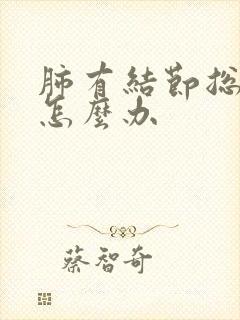 肺有結節总
怎麼办
蔡智奇